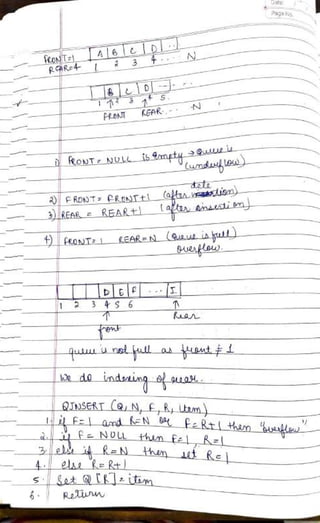 Date
Page No.
FRONT=1 A B C D ...
REAR=4 1 2 3 4 . . . N
B C D ...
1 2 3 4 5 . . . N
FRONT REAR
1) FRONT = NULL is empty → Queue is
(underflow)
2) FRONT = FRONT+1 (after deletion)
3) REAR = REAR+1 (after insertion)
4) FRONT=1 REAR=N (Queue is full)
Overflow.
D E F ... I
1 2 3 4 5 6
front Rear
queue is not full as front ≠ 1
We do indexing of rear.
QINSERT (Q, N, F, R, item)
1. if F=1 and R=N or F=R+1 then "overflow"
2. if F = NULL then F=1, R=1
3. else if R=N then set R=1
4. else R=R+1
5. Set Q[R]=item
6. Return